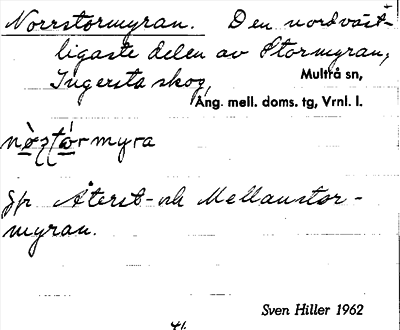 Norrstormyran. Den nordväst-
ligaste delen av Stormyran,
Ingersta skog,
Multrå sn,
Ång. mell. doms. tg, Vrnl. l.
myra
Jfr Återst- och Mellanstor-
myran.
Sven Hiller 1962